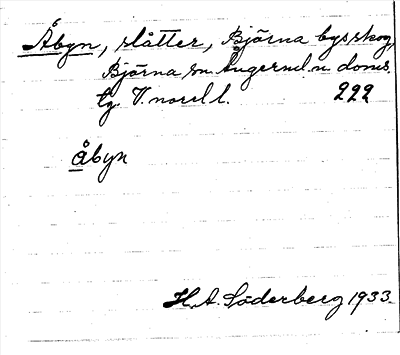 Åbyn, slåtter, Bjärna bysskog,
Bjärna sn Ångerml. n doms.
tg. V. norrl l. 222
åbyn
H.A. Söderberg 1933.